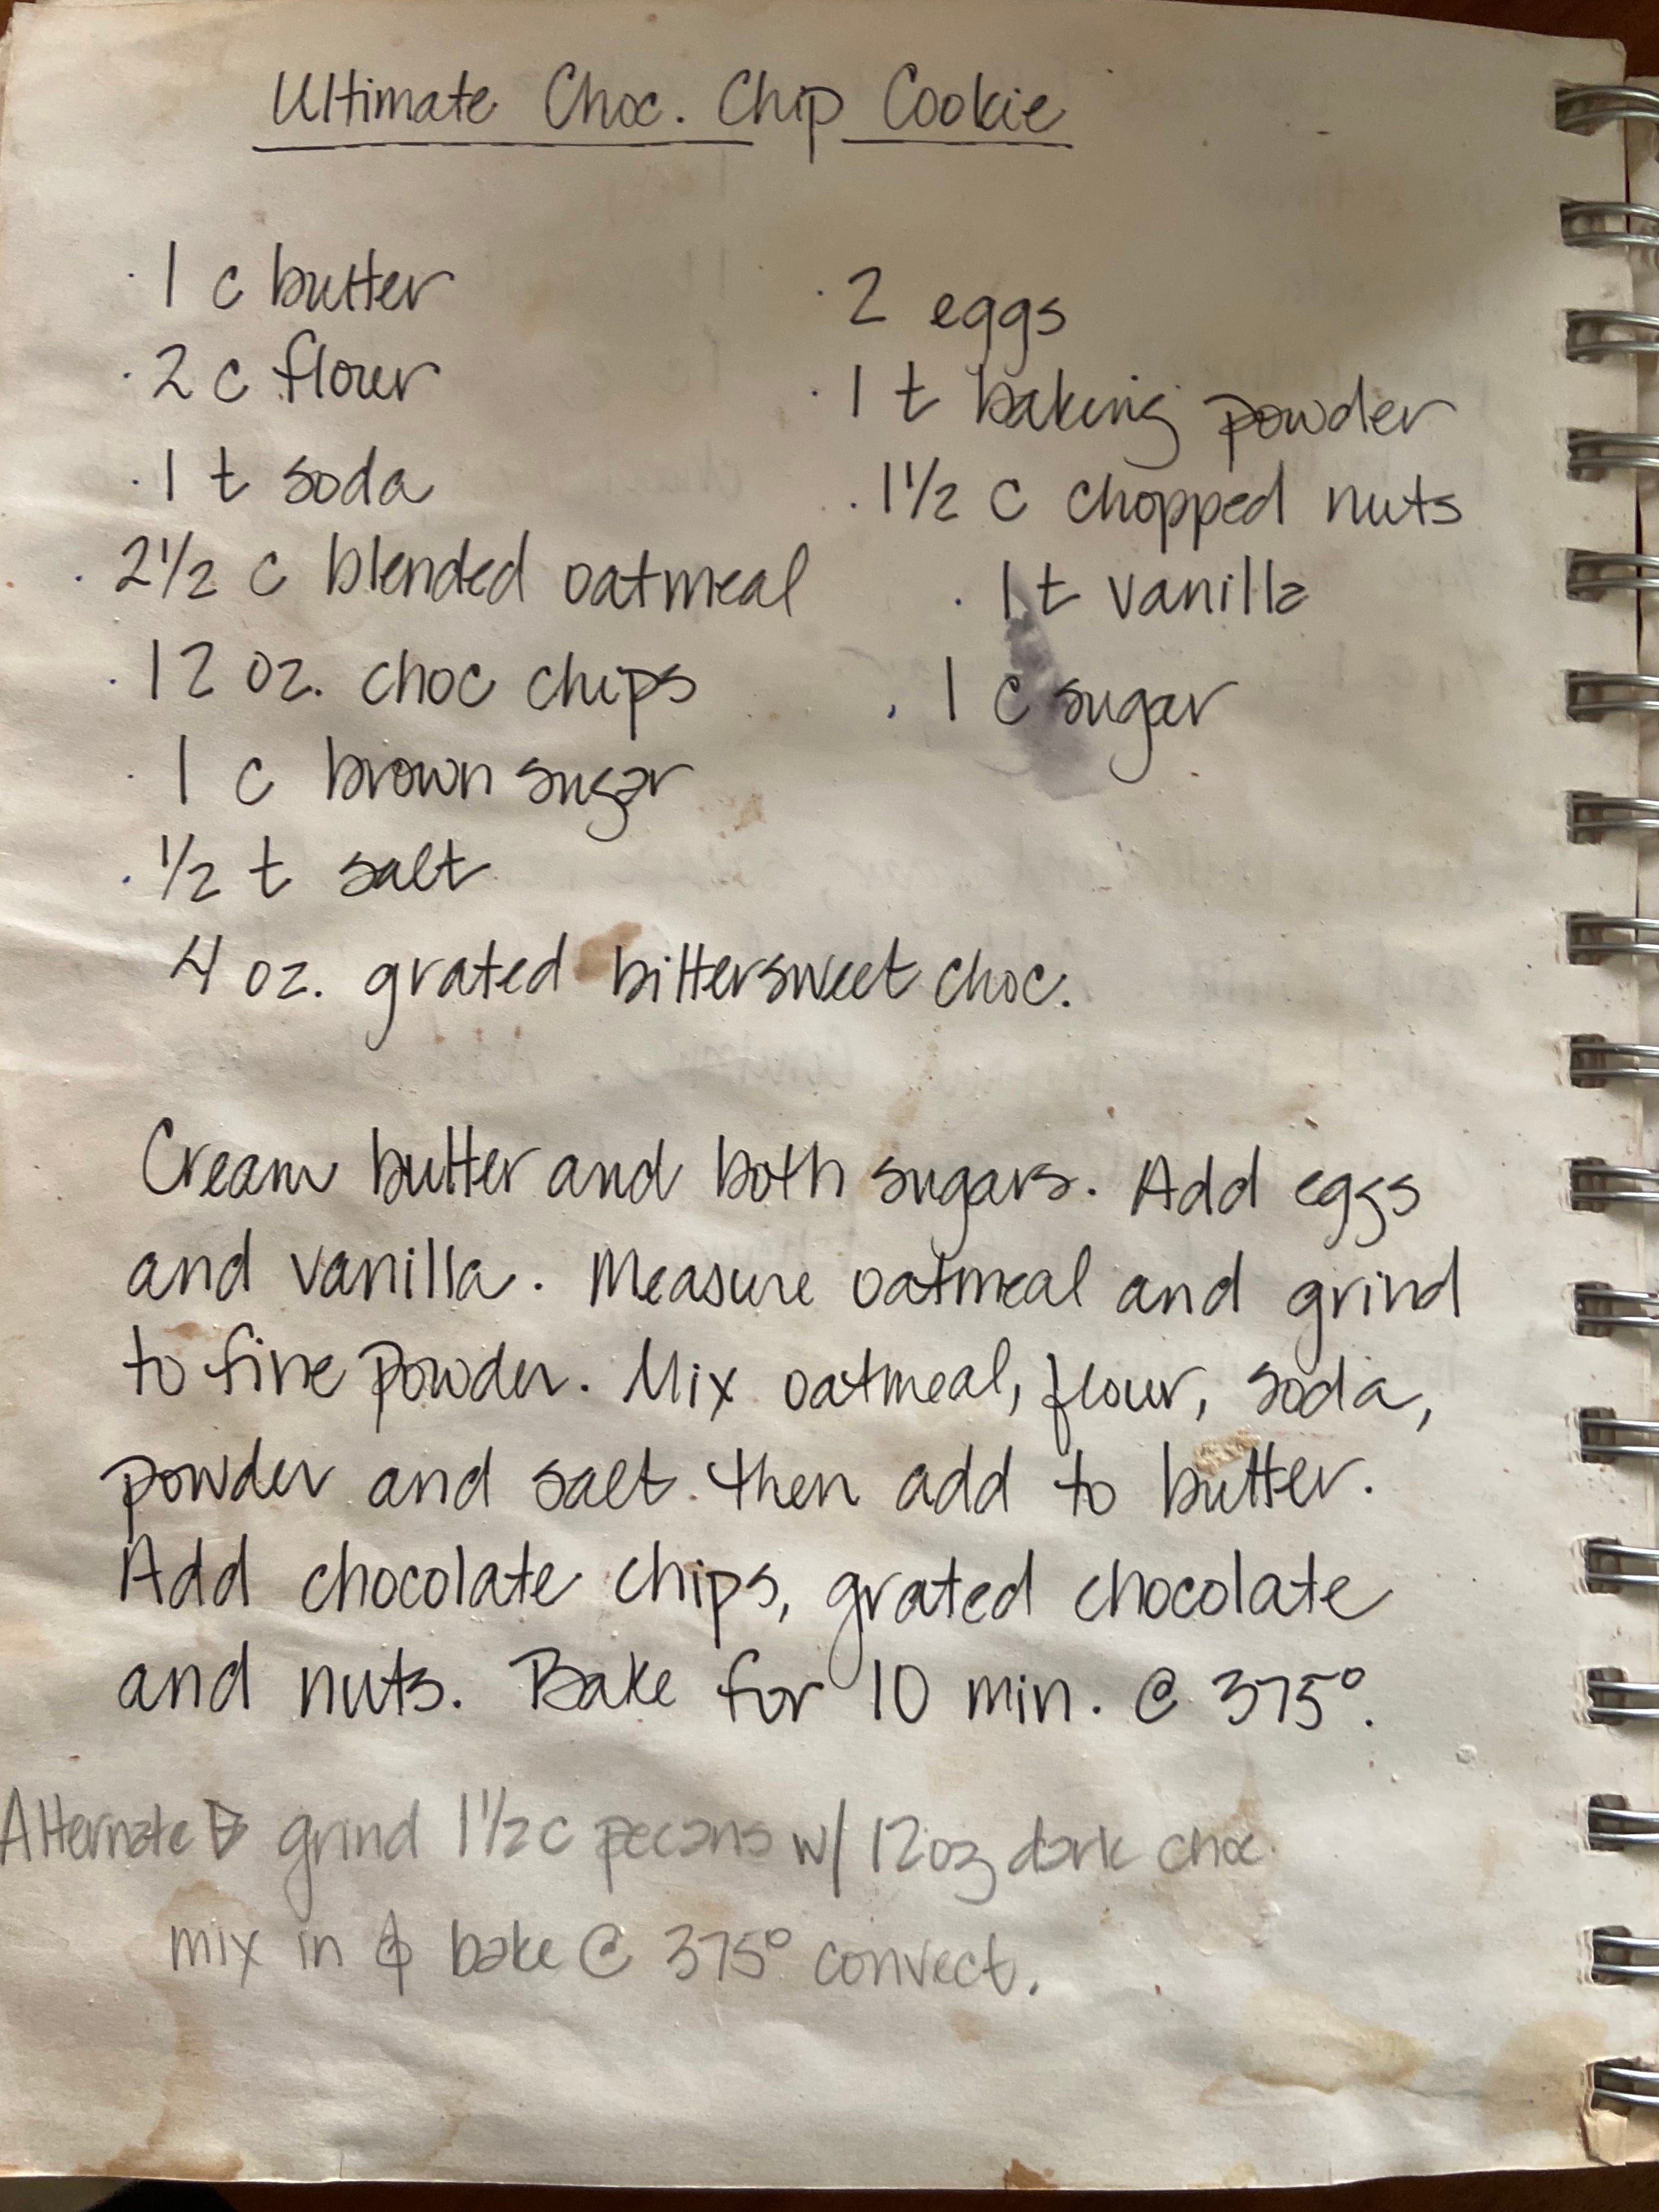 Ultimate Choc. Chip Cookie
· 1 c butter
· 2 c flour
· 1 t soda
· 2 1/2 c blended oatmeal
· 12 oz. choc chips
· 1 c brown sugar
· 1/2 t salt
4 oz. grated bittersweet choc.
· 2 eggs
· 1 t baking powder
· 1 1/2 c chopped nuts
· 1 t vanilla
· 1 c sugar
Cream butter and both sugars. Add eggs
and vanilla. Measure oatmeal and grind
to fine powder. Mix oatmeal, flour, soda,
powder and salt. then add to butter.
Add chocolate chips, grated chocolate
and nuts. Bake for 10 min. @ 375°.
Alternate → grind 1 1/2 c pecans w/ 12 oz dark choc
mix in & bake @ 375° convect.